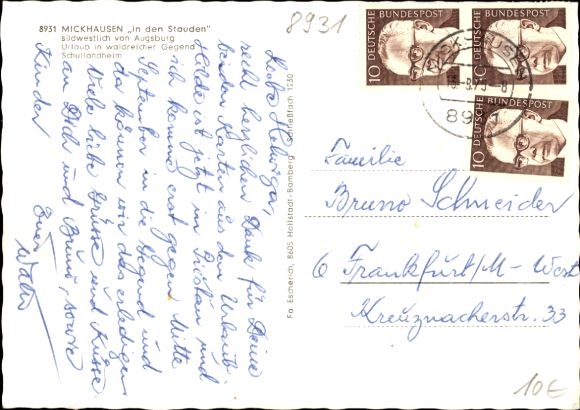 8931 MICKHAUSEN „In den Stauden"
südwestlich von Augsburg
Urlaub in waldreicher Gegend
Schullandheim
8931
Liebe Hedwig,
recht herzlichen Dank für Deine
beiden Karten aus dem Urlaub.
Hilde ist jetzt in und
ich komme erst gegen Mitte
September in die Gegend und
da können wir das erledigen
Viele liebe Grüsse und Küsse
an Dich und Bruno, sowie
Kinder
Euer
Walter
Fa. Escherich, 8605 Hallstadt-Bamberg Schließfach 1230
10 DEUTSCHE BUNDESPOST
10 DEUTSCHE BUNDESPOST
10 DEUTSCHE BUNDESPOST
MICKHAUSEN
8931
Familie
Bruno Schneider
6 Frankfurt/M-West
Kreuznacherstr. 33
10€